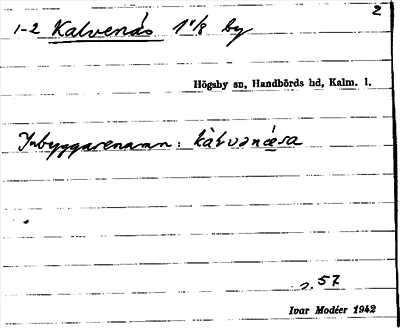 2
1-2 Kalvenäs 1 1/8 by
Högsby sn, Handbörds hd, Kalm. l.
Inbyggarenamn:
s. 57
Ivar Modéer 1942